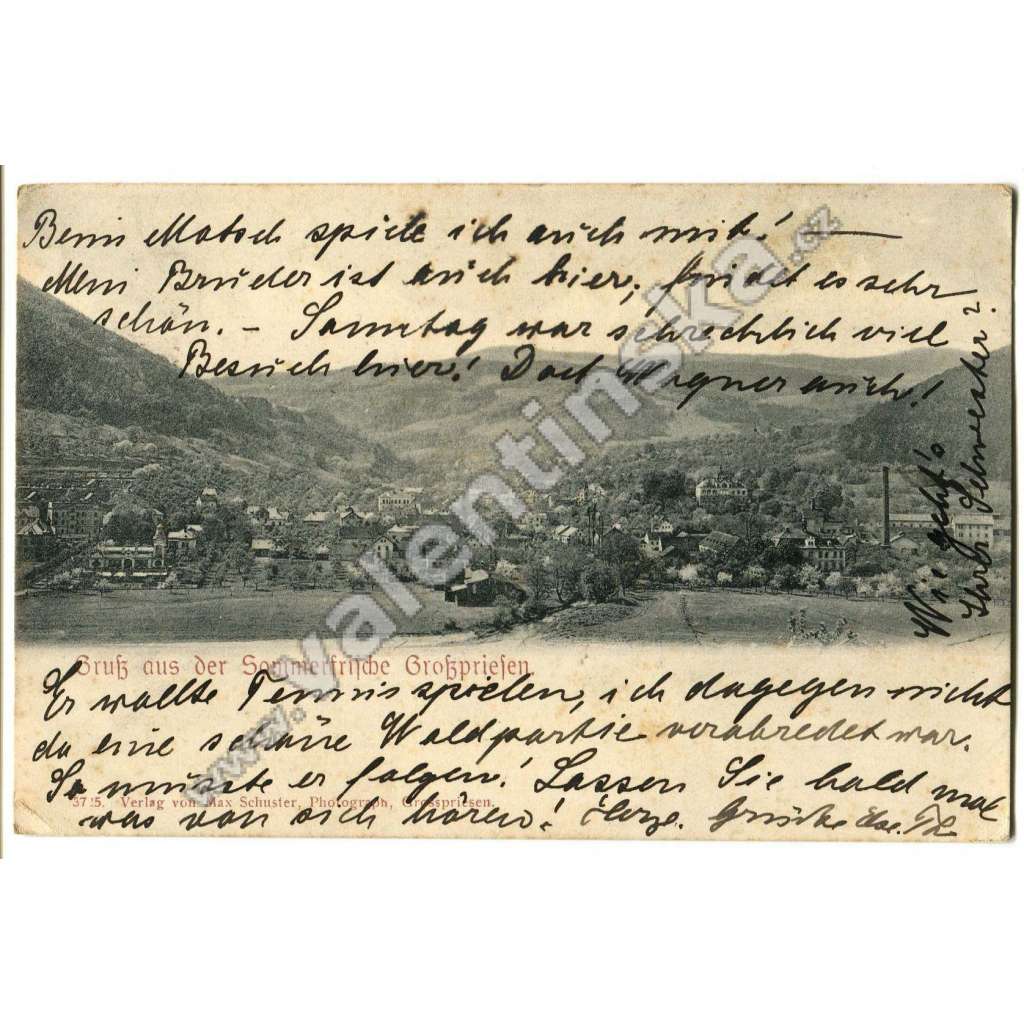 Beim Match spiele ich auch mit! —
Mein Bruder ist auch hier, findet es sehr
schön. – Samstag war schrecklich viel
Besuch hier! Dach Wagner auch!
Wie geht's
Ihrer Schwester?
Gruß aus der Sommerfrische Großpriesen.
Er wollte Tennisspielen, ich dagegen nicht
da eine schöne Waldpartie verabredet war.
So musste er folgen! Lassen Sie bald mal
3725. Verlag von Max Schuster, Photograph, Grosspriesen.
was von sich hören! Herzl. Grüsse
www.valentinska.cz